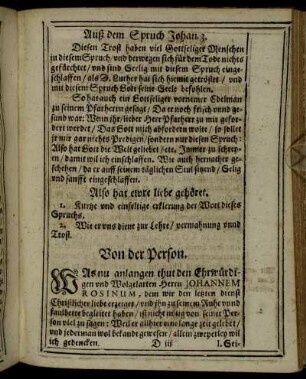 Auß dem Spruch Johan. 3.
Diesen Trost haben viel Gottseliger Menschen
in diesem Spruch / und derwegen sich für dem Tode nichts
gefürchtet / und sind Seelig mit diesem Spruch einge-
schlaffen / als D. Luther hat sich hiemit getröstet / und
mit diesem Spruch Gott seine Seele befohlen.
So hat auch ein Gottseliger vornemer Edelman
zu seinem Pfarherrn gesagt / Da er noch frisch und ge-
sund war: Wenn ihr / lieber Herr Pfarherr zu mir gefo-
dert werdet / Das Gott mich abfordern wolte / so sollet
ir mir gar nichts Predigen / sondern nur diesen Spruch:
Also hat Gott die Welt geliebet / etc. Immer zu schrey-
en / damit wil ich einschlaffen. Wie auch hernacher ge-
schehen / da er auff seinem täglichen Stul sitzend / Selig
und sanfft eingeschlaffen.
Also hat ewre liebe gehöret.
1. Kurtze und einfeltige erklerung der Wort dieses
Spruchs.
2. Wie er uns diene zur Lehre / vermahnung und
Trost.
Von der Person.
WAs nu anlangen thut den Ehrwürdi-
gen und Wolgelarten Herrn JOHANNEM
ROSINUM, dem wir den letzten dienst
Christlicher liebe erzeiget / und ihn zu seinem Ruhe und
faulbette begleitet haben / ist nicht nötig von seiner Per-
son viel zu sagen: Weil er alhier eine lange zeit gelebet /
und jederman wol bekandt gewesen / allein zweyerley wil
ich gedencken.
D iii
1. Sei-